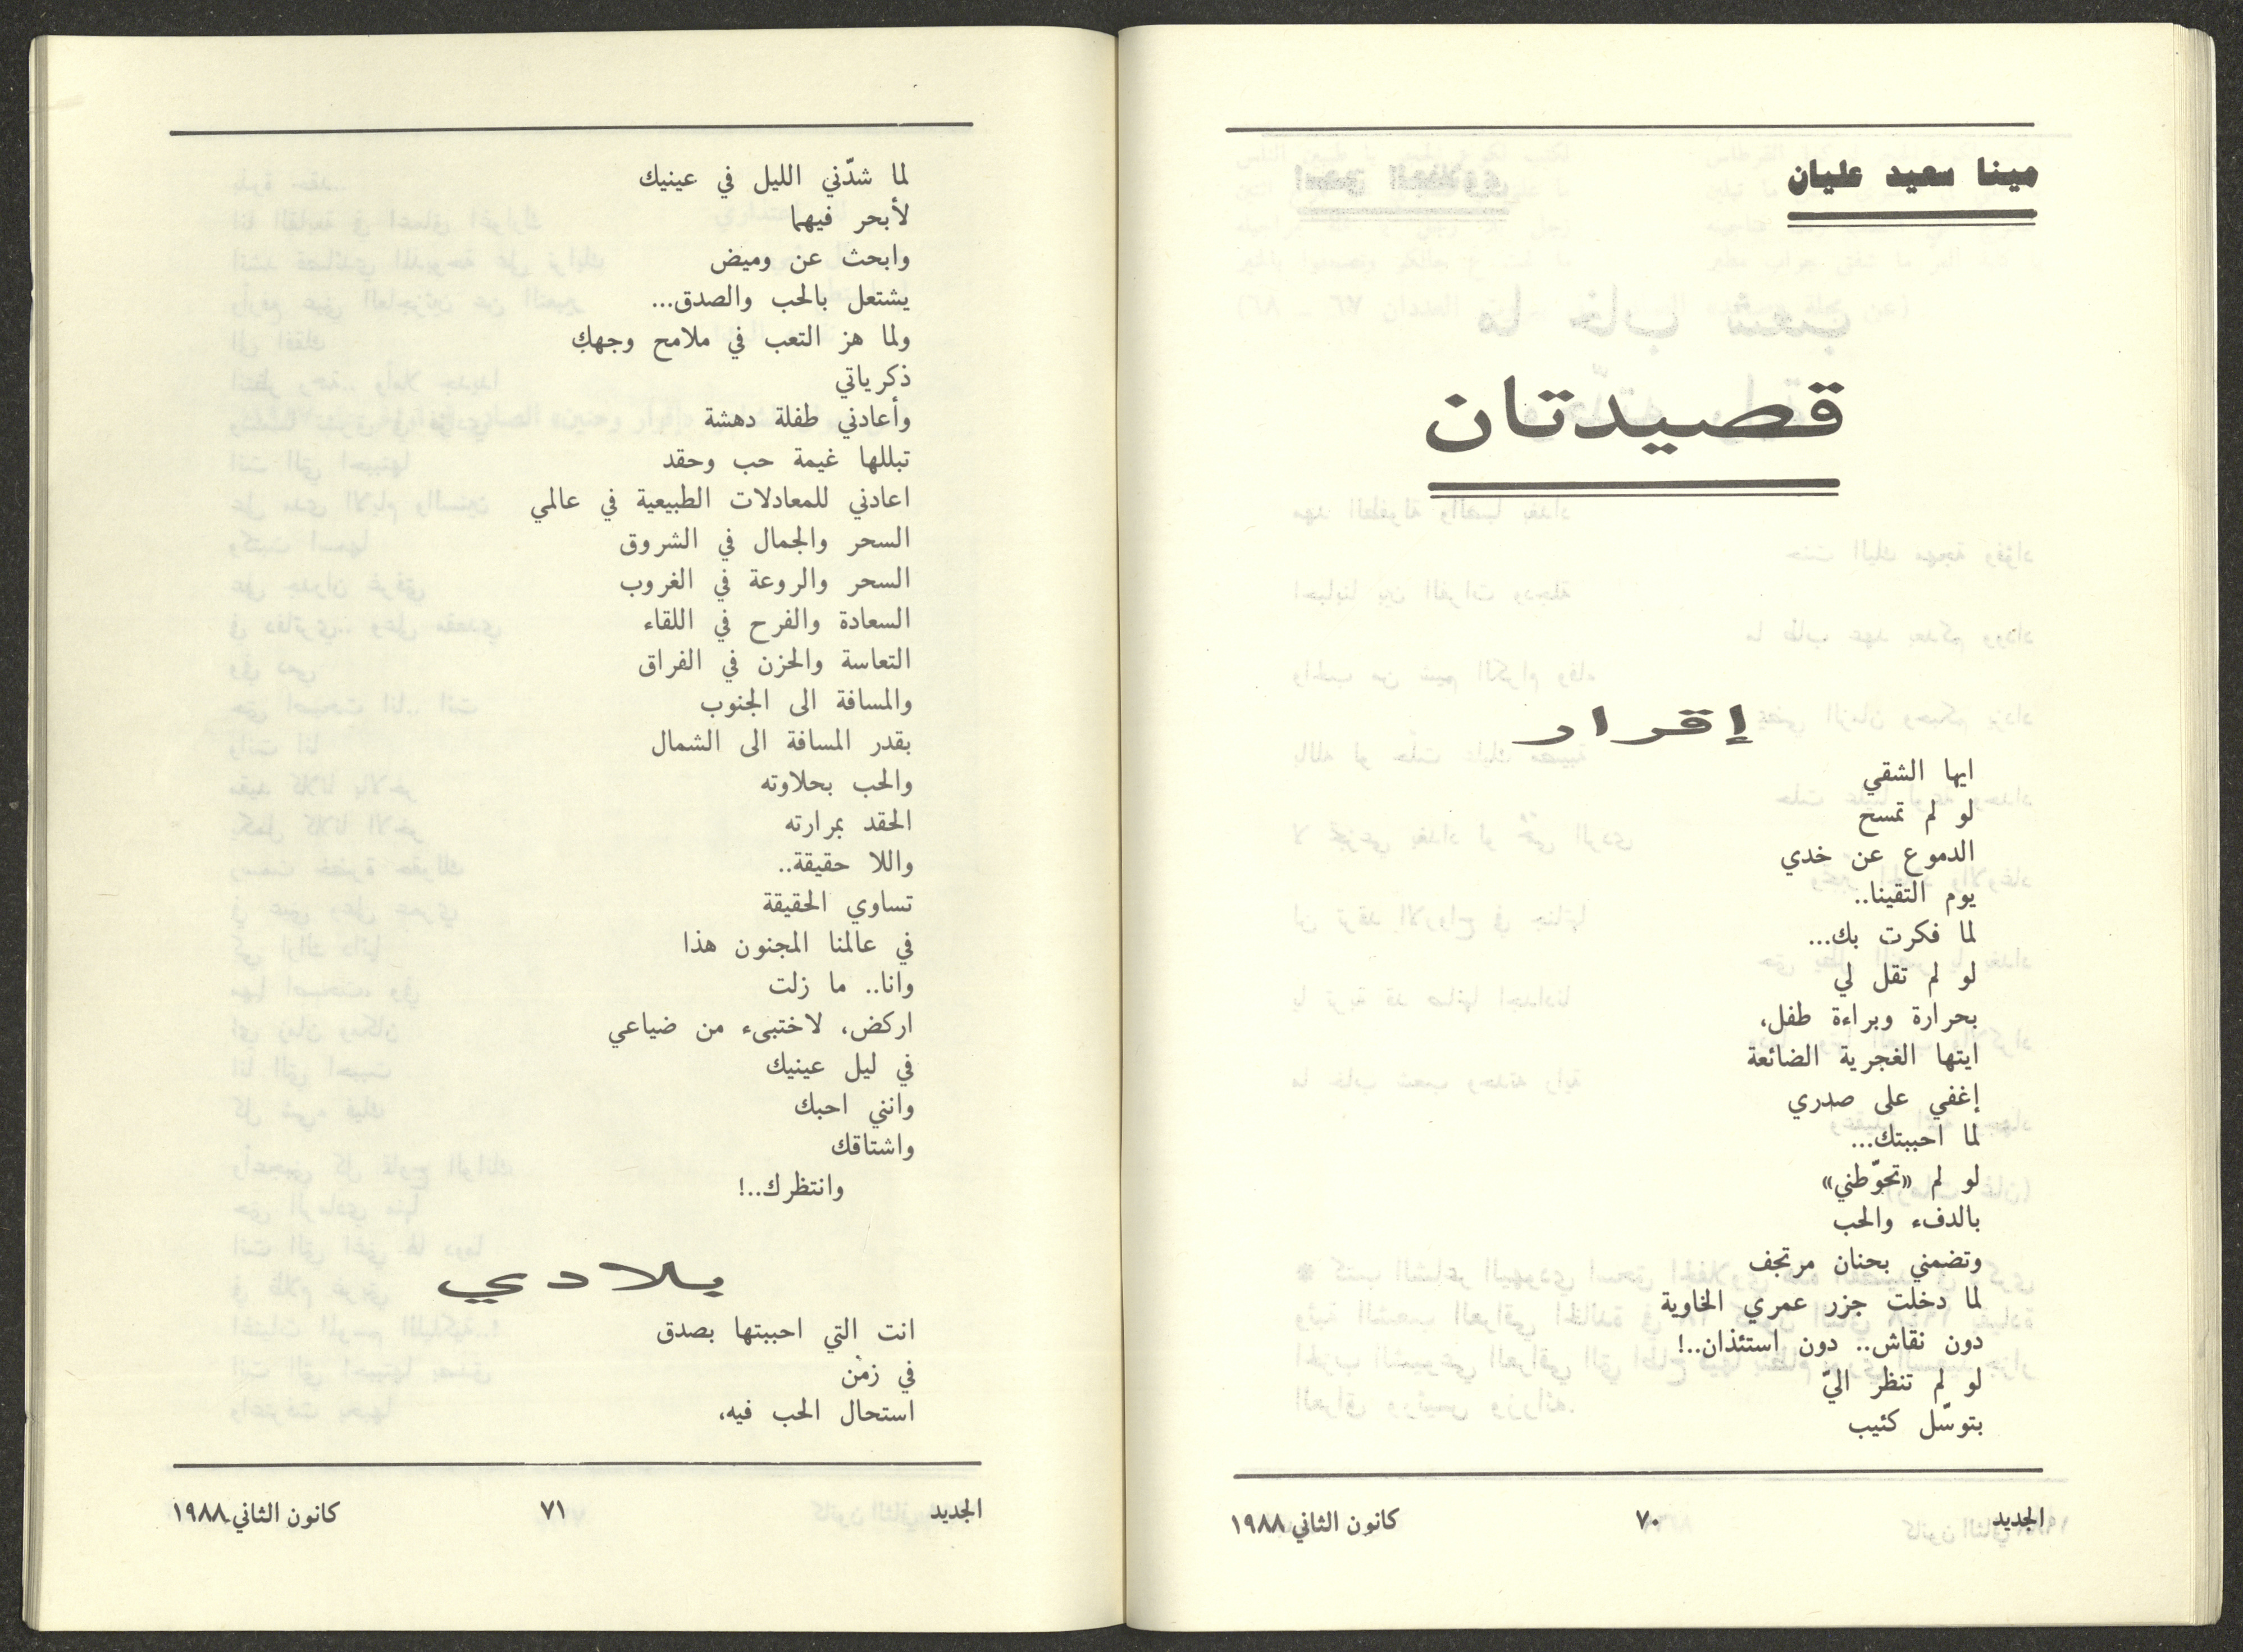 مينا سعيد عليان
قصيدتان
إقرار
ايها الشقي
لو لم تمسح
الدموع عن خدي
يوم التقينا..
لما فكرت بك...
لو لم تقل لي
بحرارة وبراءة طفل،
ايتها الغجرية الضائعة
إغفي على صدري
لما احببتك...
لو لم «تحوّطني»
بالدفء والحب
وتضمني بحنان مرتجف
لما دخلت جزر عمري الخاوية
دون نقاش.. دون استئذان..!
لو لم تنظر اليّ
بتوسّل كئيب
الجديد ٧٠ كانون الثاني ١٩٨٨
لما شدّني الليل في عينيك
لأبحر فيهما
وابحث عن وميض
يشتعل بالحب والصدق...
ولما هز التعب في ملامح وجهكِ
ذكرياتي
وأعادني طفلة دهشة
تبللها غيمة حب وحقد
اعادني للمعادلات الطبيعية في عالمي
السحر والجمال في الشروق
السحر والروعة في الغروب
السعادة والفرح في اللقاء
التعاسة والحزن في الفراق
والمسافة الى الجنوب
بقدر المسافة الى الشمال
والحب بحلاوته
الحقد بمرارته
واللا حقيقة..
تساوي الحقيقة
في عالمنا المجنون هذا
وانا.. ما زلت
اركض، لاختبىء من ضياعي
في ليل عينيك
وانني احبك
واشتاقك
وانتظرك..!
بلادي
انت التي احببتها بصدق
في زمن
استحال الحب فيه،
الجديد ٧١ كانون الثاني ١٩٨٨